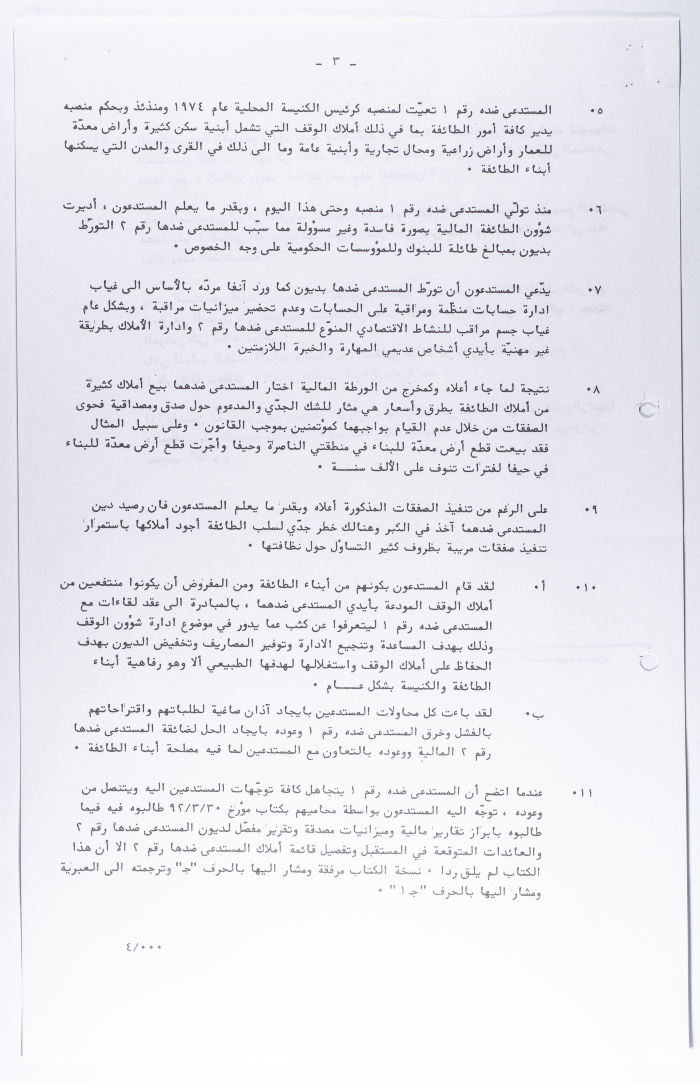 - ٣ -
٠٥ المستدعى ضده رقم ١ تعيّت لمنصبه كرئيس الكنيسة المحلية عام ١٩٧٤ ومنذئذ وبحكم منصبه
يدير كافة أمور الطائفة بما في ذلك أملاك الوقف التي تشمل أبنية سكن كثيرة وأراض معدّة
للعمار وأراض زراعية ومحال تجارية وأبنية عامة وما الى ذلك في القرى والمدن التي يسكنها
أبناء الطائفة ٠
٠٦ منذ تولّي المستدعى ضده رقم ١ منصبه وحتى هذا اليوم ، وبقدر ما يعلم المستدعون ، أديرت
شؤون الطائفة المالية بصورة فاسدة وغير مسؤولة مما سبّب للمستدعى ضدها رقم ٢ التورّط
بديون بمبالغ طائلة للبنوك وللمؤوسسات الحكومية على وجه الخصوص ٠
٠٧ يدّعي المستدعون أن تورّط المستدعى ضدها بديون كما ورد آنفا مردّه بالأساس الى غياب
ادارة حسابات منظّمة ومراقبة على الحسابات وعدم تحضير ميزانيات مراقبة ، وبشكل عام
غياب جسم مراقب للنشاط الاقتصادي المنوّع للمستدعى ضدها رقم ٢ وادارة الأملاك بطريقة
غير مهنيّة بأيدي أشخاص عديمي المهارة والخبرة اللازمتين ٠
٠٨ نتيجة لما جاء أعلاه وكمخرج من الورطة المالية اختار المستدعى ضدهما بيع أملاك كثيرة
من أملاك الطائفة بطرق وأسعار هي مثار للشك الجدّي والمدعوم حول صدق ومصداقية فحوى
الصفقات من خلال عدم القيام بواجبهما كمؤتمنين بموجب القانون ٠ وعلى سبيل المثال
فقد بيعت قطع أرض معدّة للبناء في منطقتي الناصرة وحيفا وأجّرت قطع أرض معدّة للبناء
في حيفا لفترات تنوف على الألف سنـــة ٠
٠٩ على الرغم من تنفيذ الصفقات المذكورة أعلاه وبقدر ما يعلم المستدعون فان رصيد دين
المستدعى ضدهما آخذ في الكبر وهنالك خطر جدّي لسلب الطائفة أجود أملاكها باستمرار
تنفيذ صفقات مريبة بظروف كثير التساؤل حول نظافتها ٠
٠١٠ أ٠ لقد قام المستدعون بكونهم من أبناء الطائفة ومن المفروض أن يكونوا منتفعين من
أملاك الوقف المودعة بأيدي المستدعى ضدهما ، بالمبادرة الى عقد لقاءات مع
المستدعى ضده رقم ١ ليتعرفوا عن كثب عما يدور في موضوع ادارة شؤون الوقف
وذلك بهدف المساعدة وتنجيع الادارة وتوفير المصاريف وتخفيض الديون بهدف
الحفاظ على أملاك الوقف واستغلالها لهدفها الطبيعي ألا وهو رفاهية أبناء
الطائفة والكنيسة بشكل عـــام ٠
ب٠ لقد باءت كل محاولات المستدعين بايجاد آذان صاغية لطلباتهم واقتراحاتهم
بالفشل وخرق المستدعى ضده رقم ١ وعوده بايجاد الحل لضائقة المستدعى ضدها
رقم ٢ المالية ووعوده بالتعاون مع المستدعين لما فيه مصلحة أبناء الطائفة ٠
٠١١ عندما اتضح أن المستدعى ضده رقم ١ يتجاهل كافة توجّهات المستدعين اليه ويتنصل من
وعوده ، توجّه اليه المستدعون بواسطة محاميهم بكتاب مؤرّخ ٩٢/٣/٣٠ طالبوه فيه فيما
طالبوه بابراز تقارير مالية وميزانيات مصدقة وتقرير مفصّل لديون المستدعى ضدها رقم ٢
والعائدات المتوقعة في المستقبل وتفصيل قائمة أملاك المستدعى ضدها رقم ٢ الا أن هذا
الكتاب لم يلق ردا ٠ نسخة الكتاب مرفقة ومشار اليها بالحرف "جـ" وترجمته الى العبرية
ومشار اليها بالحرف "جـ١" ٠
٤/٠٠٠